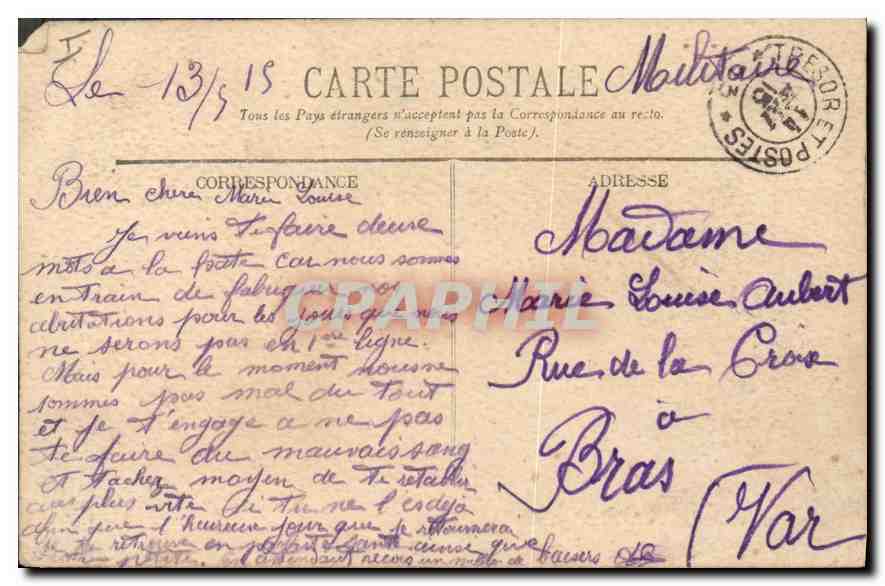 I
Le 13/5 15
CARTE POSTALE
Militaire
TRESOR ET POSTES
Tous les Pays étrangers n'acceptent pas la Correspondance au recto.
(Se renseigner à la Poste).
CORRESPONDANCE
Bien chere Marie Louise
Je viens te faire deuse
mots a la hate car nous sommes
en train de fabriquer nos
abritations pour les jours que nous
ne serons pas en 1ere ligne.
Mais pour le moment nous ne
sommes pas mal du tout
et je t'engage a ne pas
te faire du mauvais sang
et tachez moyen de te retablir
au plus vite si tu ne l'es deja
afin que l'heureuse jour que je retournerai
je te retrouve en parfaite santé ainse que
notre petite. En attendant recois un million de baisers
ADRESSE
Madame
Marie Louise Aubert
Rue de la Croix
à
Bras
(Var
CPAPHIL